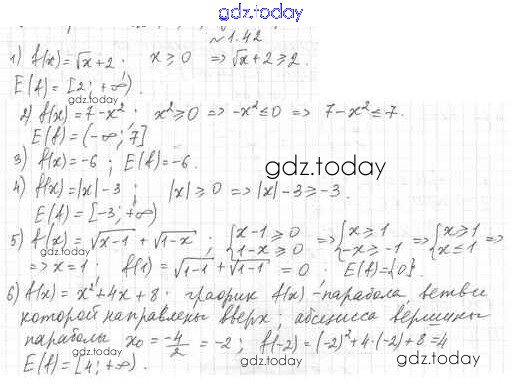 gdz.today
№1.42
1) f(x)=√x+2; x≥0 ⇒ √x+2≥2.
E(f)=[2;+∞).
gdz.today
2) f(x)=7-x²; x²≥0 ⇒ -x²≤0 ⇒ 7-x²≤7.
E(f)=(-∞;7]
3) f(x)=-6; E(f)=-6.
gdz.today
4) f(x)=|x|-3; |x|≥0 ⇒ |x|-3≥-3.
gdz.today
E(f)=[-3;+∞)
5) f(x)=√x-1+√1-x; {x-1≥0 1-x≥0 ⇒ {x≥1 -x≥-1 ⇒ {x≥1 x≤1 ⇒
gdz.today
⇒ x=1; f(1)=√1-1+√1-1=0; E(f)={0}.
6) f(x)=x²+4x+8; график f(x)-парабола, ветви
которой направлены вверх; абсцисса вершины
параболы x₀=-4/2=-2; f(-2)=(-2)²+4·(-2)+8=4
E(f)=[4;+∞).
gdz.today
gdz.today